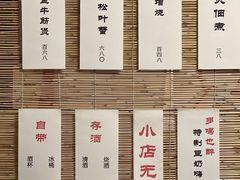 牛筋煲
百六八
松叶蟹
六八〇
烧
百四八
佃煮
三八
自带
酒杯
冰桶
存酒
清酒
烧酒
小店无
多喝也醉
特制豆奶嗨